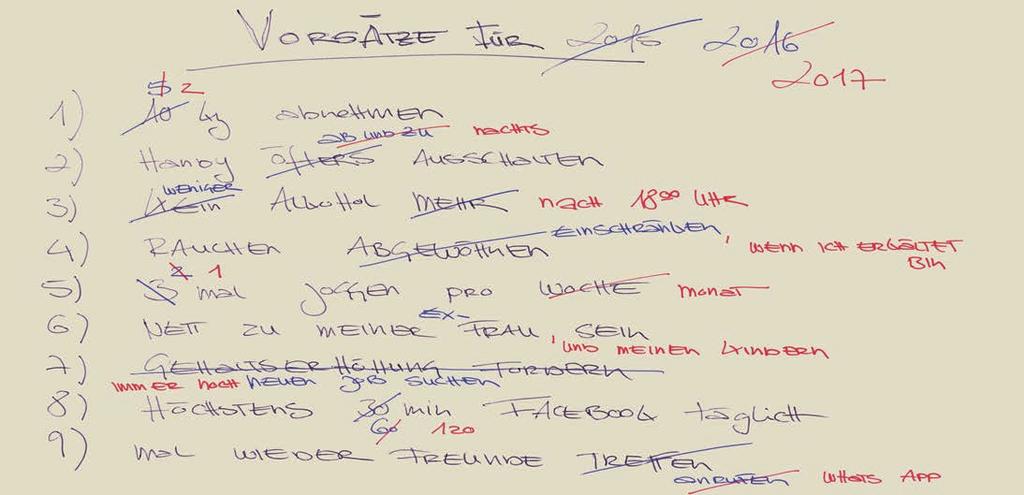 VORSÄTZE FÜR 2015 2016
2017
5 2
1) 10 kg abnehmen
ab und zu nachts
2) Handy öfters ausschalten
weniger
3) Kein Alkohol mehr nach 1800 Uhr
4) Rauchen abgewöhnen einschränken, wenn ich erkältet
bin
2 1
5) 3 mal joggen pro Woche Monat
Ex-
6) Nett zu meiner Frau, sein
und meinen Kindern
7) Gehaltserhöhung fordern
immer noch neuen Job suchen
8) Höchstens 30 min Facebook täglich
60 120
9) mal wieder Freunde treffen
anrufen Whats App